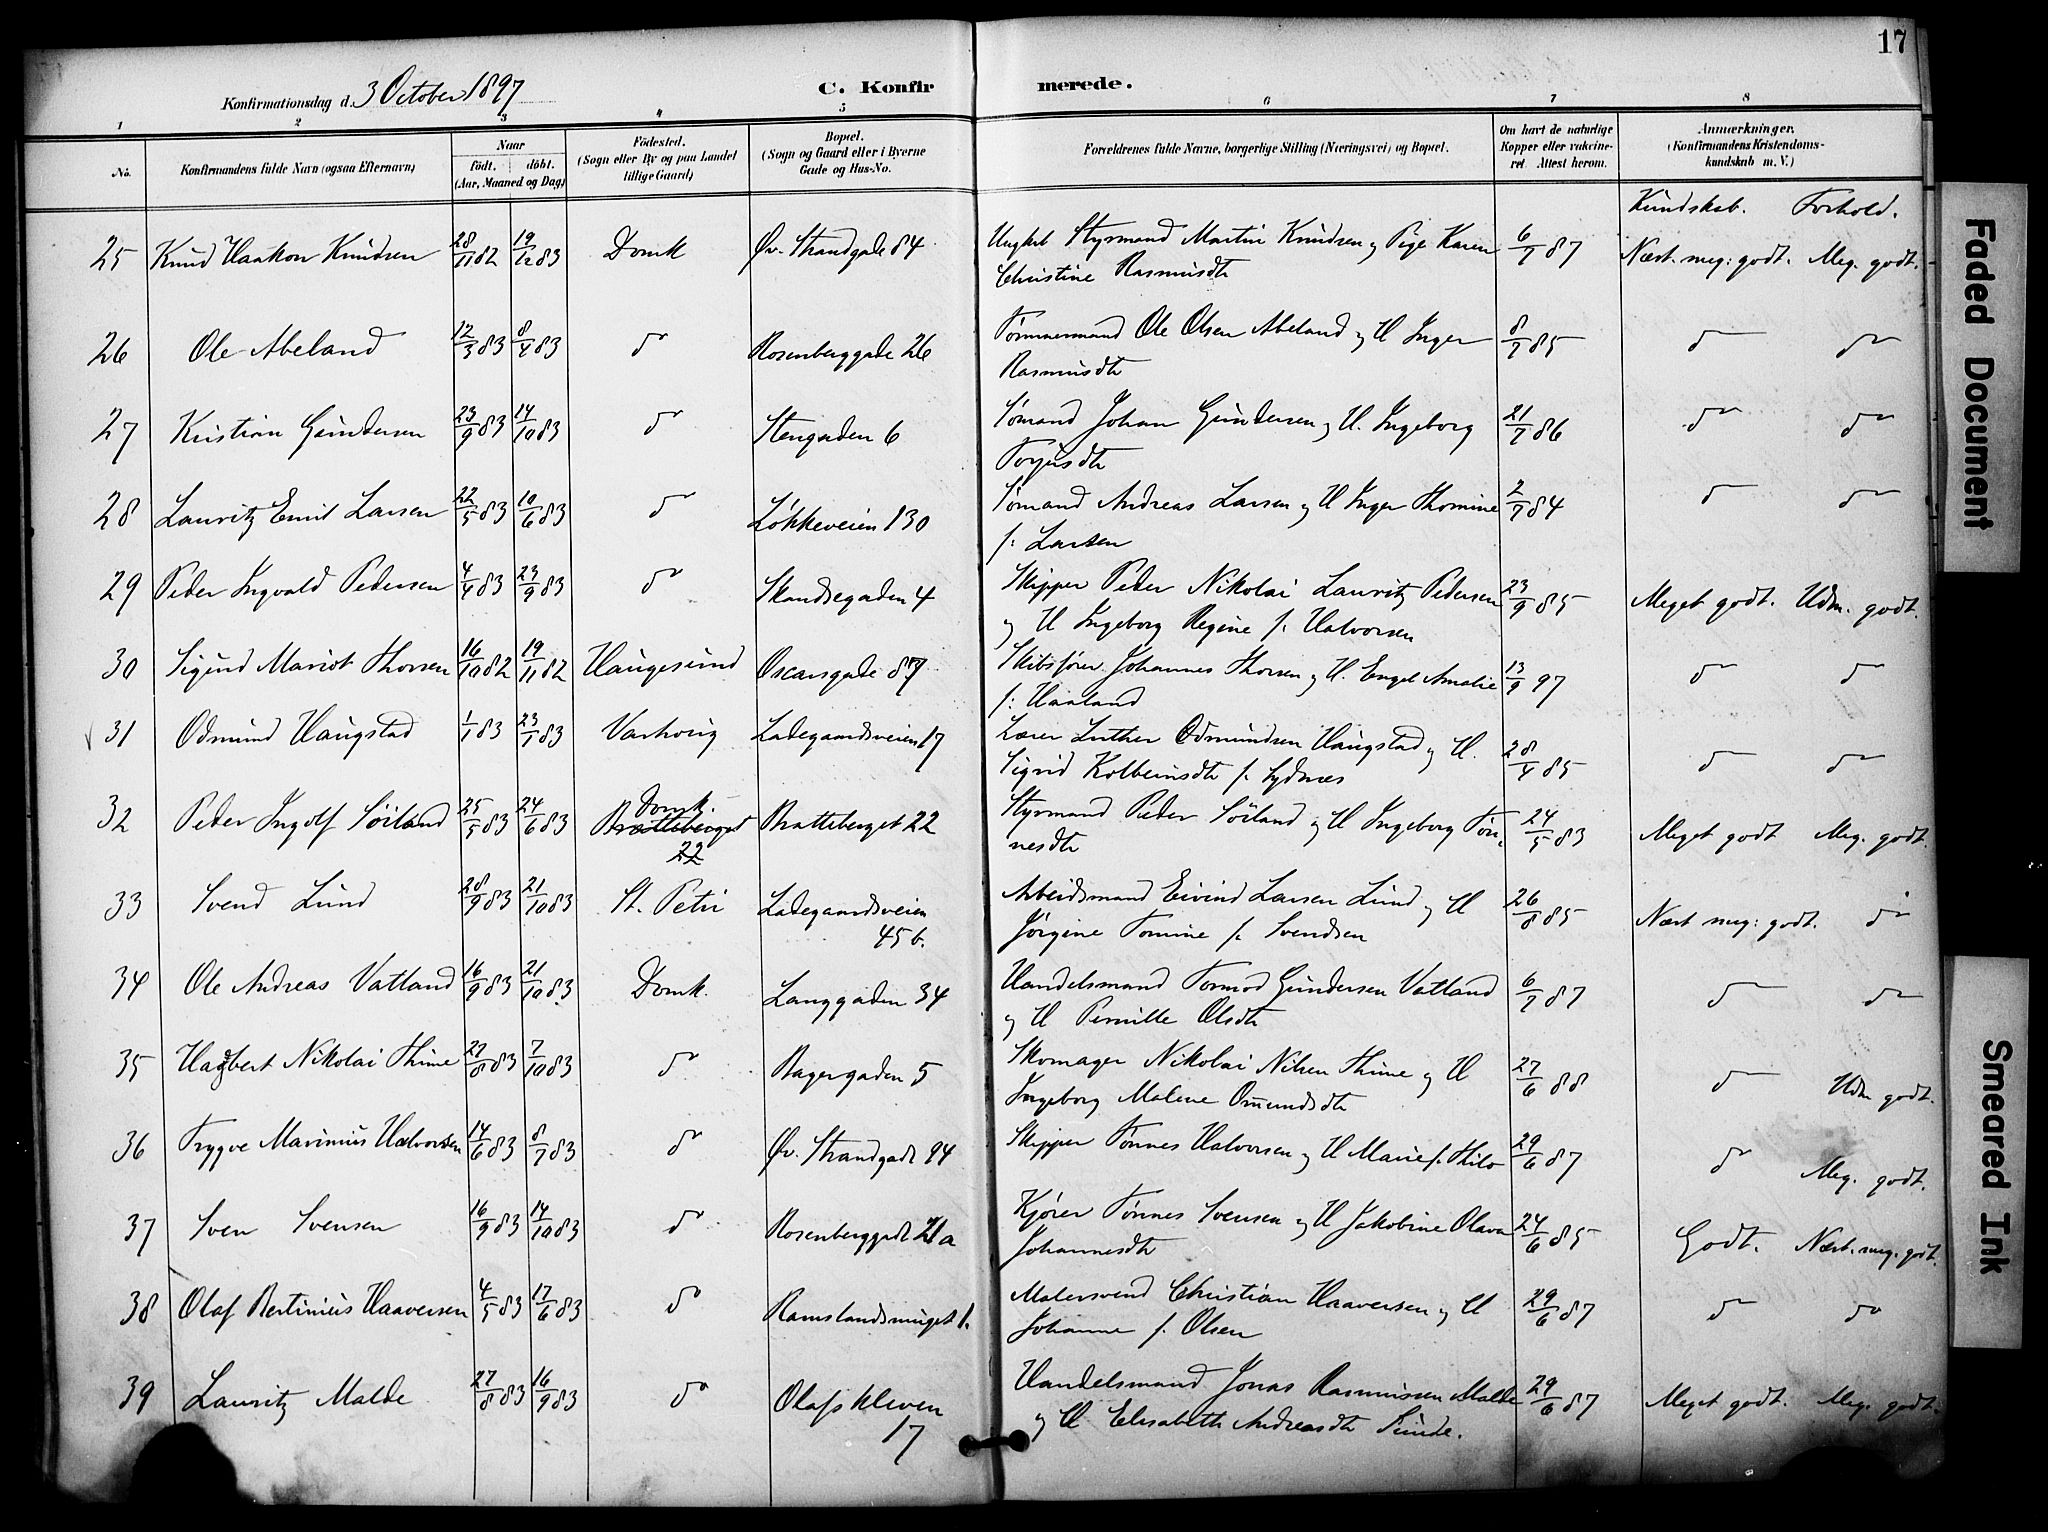 17
Konfirmationsdag d. 3 October 1897
C. Konfirmerede.
1 2 3 4 5 6 7 8
No.
Konfirmandens fulde Navn (ogsaa Efternavn)
Naar
födt. döbt.
(Aar, Maaned og Dag)
Födested.
(Sogn eller By og paa Landet
tillige Gaard)
Bopæl.
(Sogn og Gaard eller i Byerne
Gade og Hus-No.
Forældrenes fulde Navne, borgerlige Stilling (Næringsvei) og Bopæl.
Om havt de naturlige
Kopper eller vakcine-
ret. Attest herom.
Anmærkninger.
(Konfirmandens Kristendoms-
kundskab m. V.)
Kundskab. Forhold.
25 Knud Haakon Knudsen 28/11 82 19/12 83 Domk Øv. Strandgade 84 Ungkl Styrmand Martin Knudsen og Pige Karen 6/7 87 Næst. meg: godt. Meg. godt.
Christine Rasmusdt
26 Ole Abeland 12/3 83 8/4 83 do Rosenberggade 26 Tømmermand Ole Olsen Abeland og H Inger 8/7 85 do do
Rasmusdt
27 Kristian Gundersen 23/9 83 14/10 83 do Stengaden 6 Sömand Johan Gundersen og H. Ingeborg 21/7 86 do do
Torjusdt
28 Lauritz Emil Larsen 22/5 83 10/6 83 do Løkkeveien 130 Sömand Andreas Larsen og H Inger Thomine 2/7 84 do do
f. Larsen
29 Peder Ingvald Pedersen 4/4 83 23/9 83 do Skandsegaden 4 Skipper Peder Nikolai Lauritz Pedersen 23/9 85 Meget godt. Udm. godt.
og H Ingeborg Regine f. Halvorsen
30 Sigurd Mariot Thorsen 16/10 82 19/11 82 Haugesund Oscarsgade 87 Skibsfører Johannes Thorsen og H. Engel Amalie 13/9 97 do do
f. Haaland
31 Odmund Haugstad 1/1 83 23/1 83 Varhoug Ladegaardsveien 17 Lærer Luther Odmundsen Haugstad og H. 28/4 85 do do
Sigrid Kolbeinsdt f. Sydnæs
32 Peder Ingolf Söiland 25/5 83 24/6 83 Domk. Bratteberget 22 Bratteberget 22 Styrmand Peder Söiland og H Ingeborg Tøn- 24/5 83 Meget godt Meg. godt.
nesdt
33 Svend Lund 28/9 83 21/10 83 St. Petri Ladegaardsveien 45 b. Arbeidsmand Eivind Larsen Lund og H 26/8 85 Næst meg: godt. do
Jörgine Tomine f. Svendsen
34 Ole Andreas Vatland 16/9 83 21/10 83 Domk. Langgaden 34 Handelsmand Tormod Gundersen Vatland 6/7 87 do do
og H Pernille Olsdt
35 Hagbert Nikolai Thime 27/8 83 7/10 83 do Bagergaden 5 Skomager Nikolai Nilsen Thime og H 27/6 88 do Udm godt.
Ingeborg Malene Omundsdt
36 Trygve Marinius Halvorsen 14/6 83 8/7 83 do Øv. Strandgade 94 Skipper Tønnes Halvorsen og H Marie f. Thilo 29/6 87 do Meg. godt.
37 Sven Svensen 16/9 83 14/10 83 do Rosenberggade 21 a Kjører Tønnes Svensen og H Jakobine Olava 24/6 85 Godt. Næst. meg. godt.
Johannesdt
38 Olaf Bertinius Haaversen 4/5 83 17/6 83 do Ramslandsmuget 1. Malersvend Christian Haaversen og H 29/6 87 do do
Johanne f. Olsen
39 Lauritz Malde 27/8 83 16/9 83 do Olafskleven 17 Handelsmand Jonas Rasmussen Malde 29/6 87 Meget godt. Meg. godt.
og H Elisabeth Andreasdt Sunde.
Faded Document
Smeared Ink